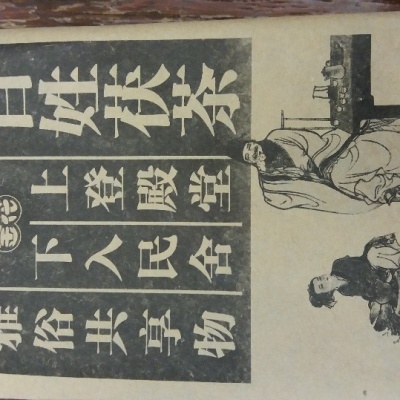 百姓扶茶
上登殿堂
下入民舍
雅俗共享物